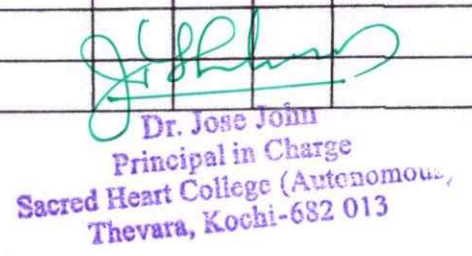 Dr. Jose John
Principal in Charge
Sacred Heart College (Autonomous)
Thevara, Kochi-682 013